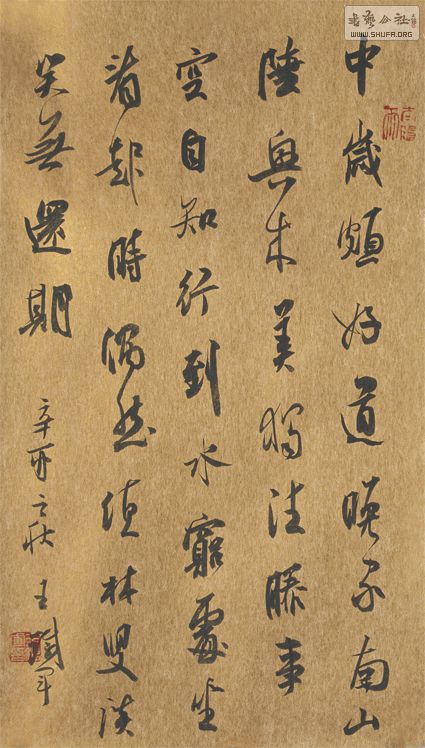 書藝公社
WWW.SHUFA.ORG
中歲頗好道晚家南山
陲興来美獨往勝事
空自知行到水窮處坐
看起時偶然值林叟談
笑無還期
之秋王